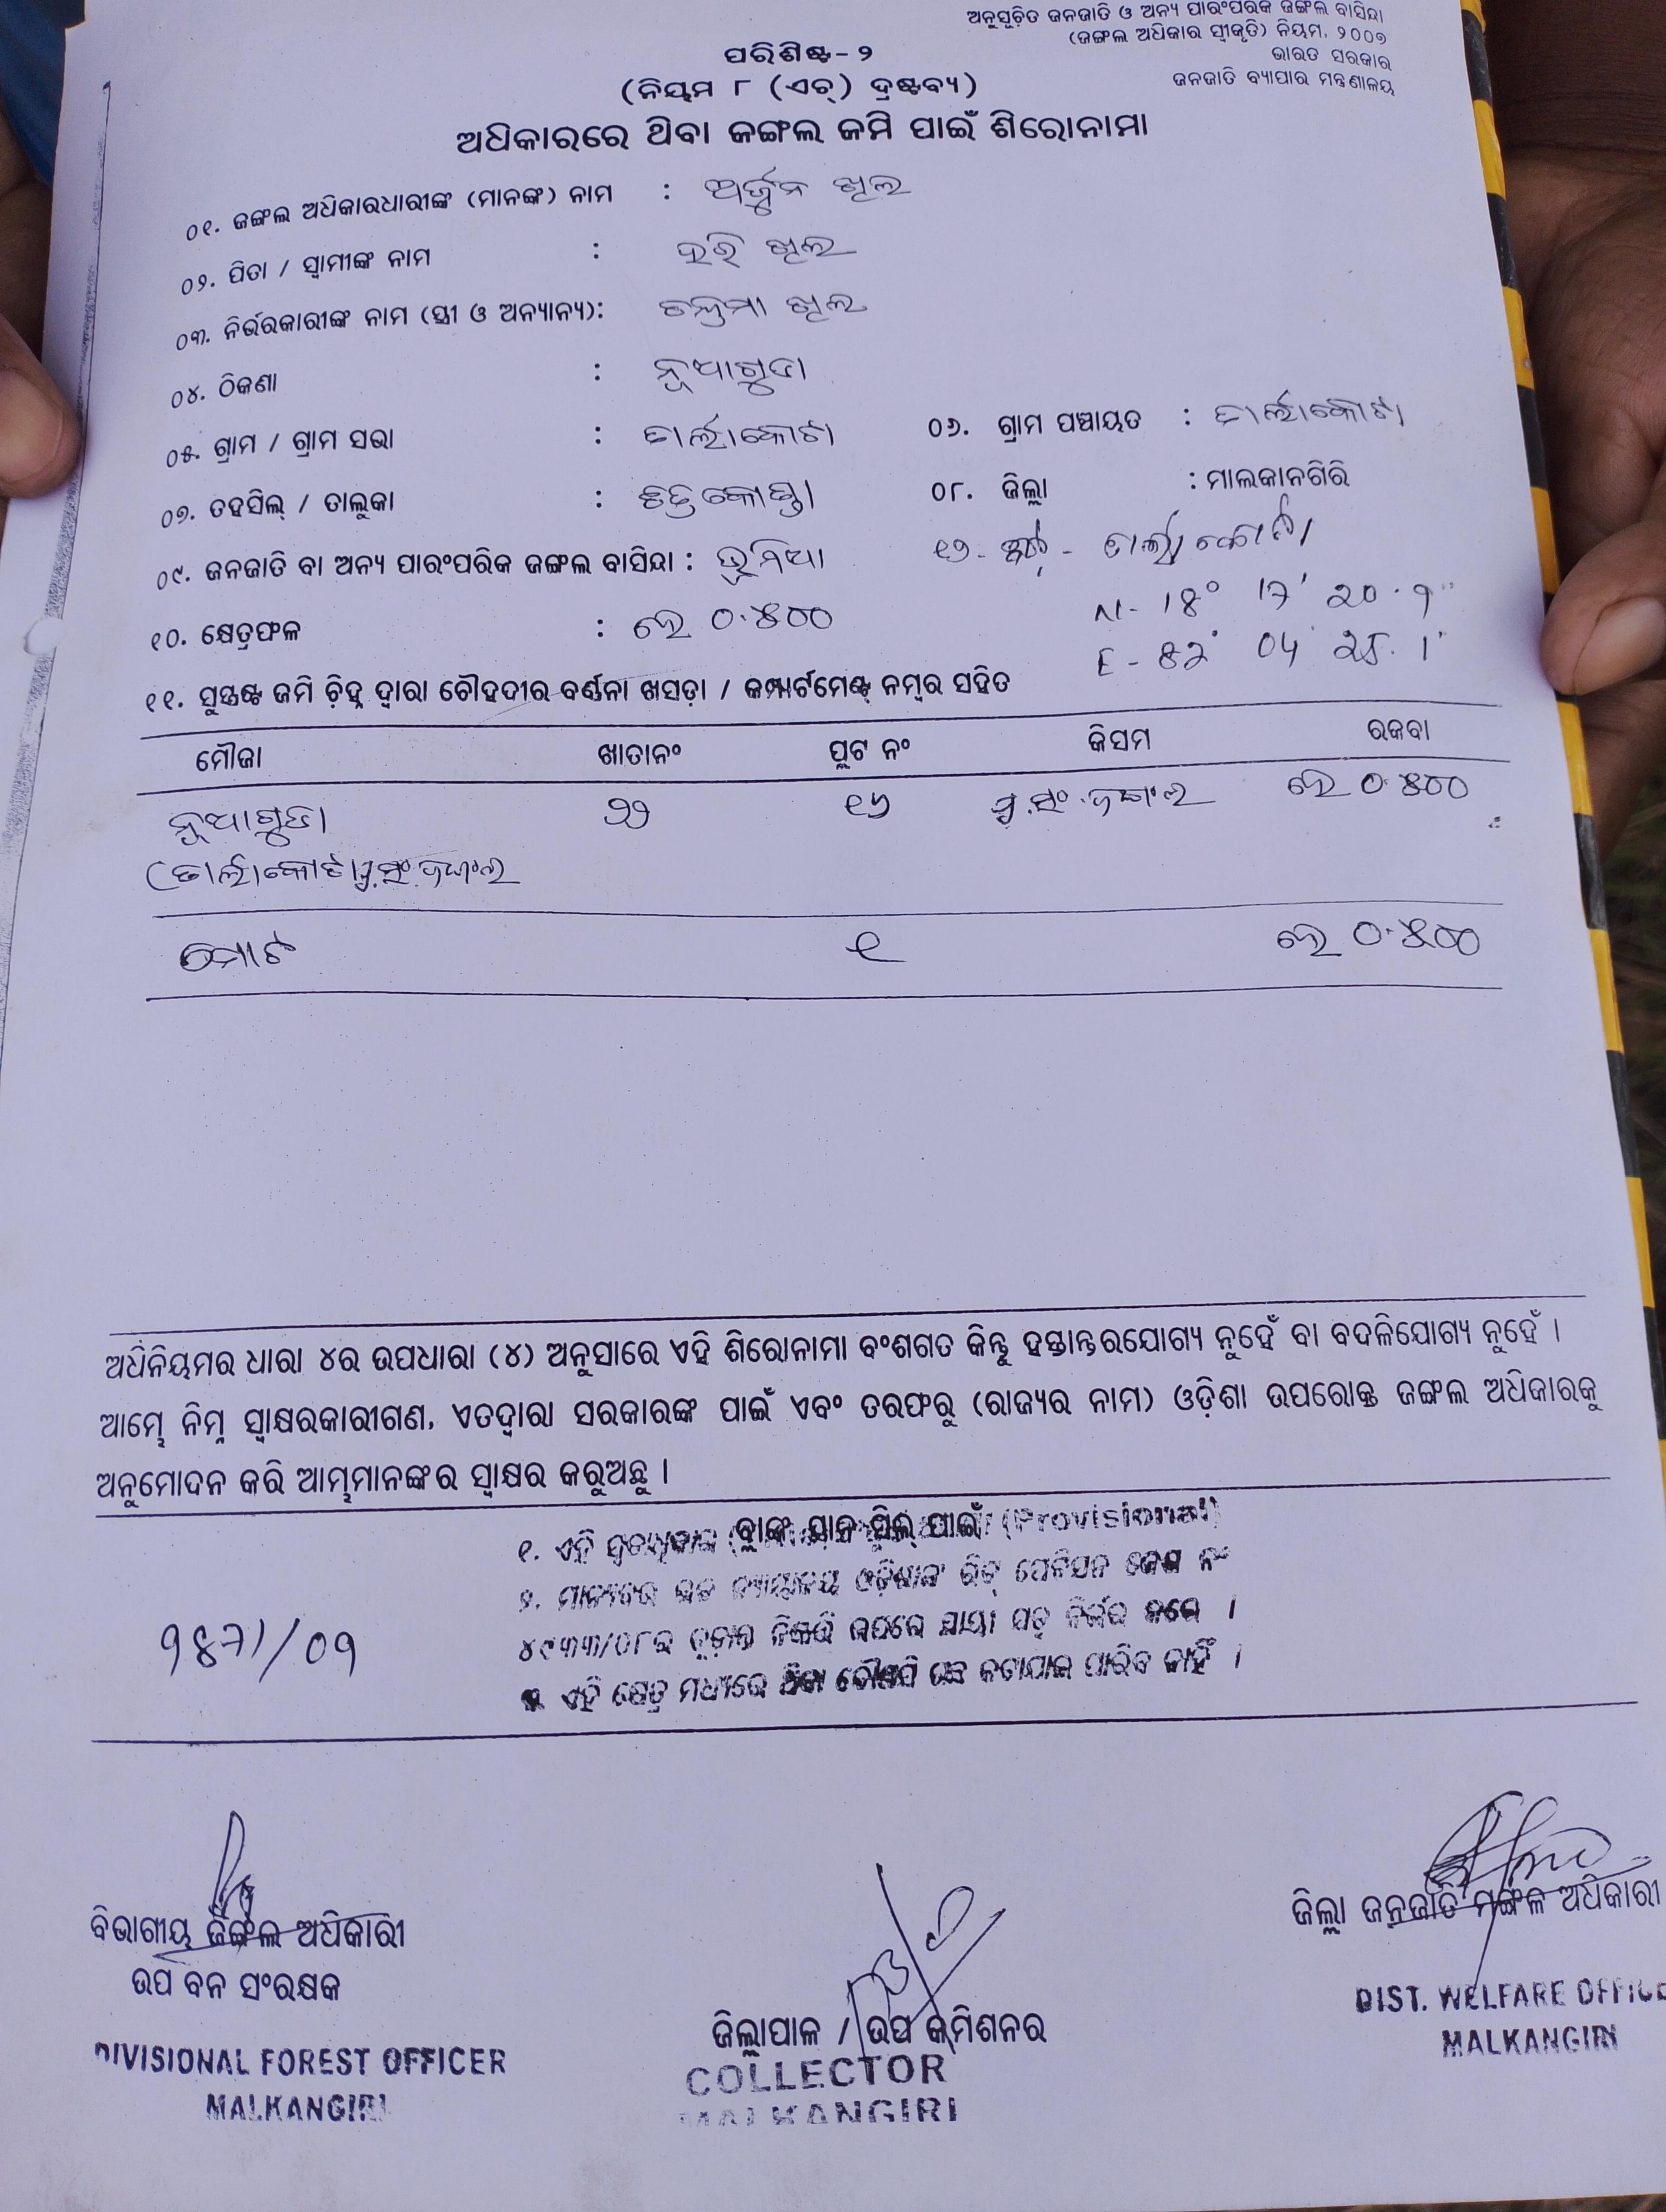 ଅନୁସୂଚିତ ଜନଜାତି ଓ ଅନ୍ୟ ପାରଂପରିକ ଜଙ୍ଗଲ ବାସିନ୍ଦା
(ଜଙ୍ଗଲ ଅଧିକାର ସ୍ୱୀକୃତି) ନିୟମ, ୨୦୦୭
ଭାରତ ସରକାର
ଜନଜାତି ବ୍ୟାପାର ମନ୍ତ୍ରଣାଳୟ
ପରିଶିଷ୍ଟ-୨
(ନିୟମ ୮ (ଏଚ୍) ଦ୍ରଷ୍ଟବ୍ୟ)
ଅଧିକାରରେ ଥିବା ଜଙ୍ଗଲ ଜମି ପାଇଁ ଶିରୋନାମା
୦୧. ଜଙ୍ଗଲ ଅଧିକାରଧାରୀଙ୍କ (ମାନଙ୍କ) ନାମ : ଅର୍ଜୁନ ଖିଲ
୦୨. ପିତା / ସ୍ୱାମୀଙ୍କ ନାମ : ହରି ଖିଲ
୦୩. ନିର୍ଭରକାରୀଙ୍କ ନାମ (ସ୍ତ୍ରୀ ଓ ଅନ୍ୟାନ୍ୟ): ଚନ୍ଦ୍ରମା ଖିଲ
୦୪. ଠିକଣା : ନୂଆଗୁଡା
୦୫. ଗ୍ରାମ / ଗ୍ରାମ ସଭା : ତାର୍ଲାକୋଟା ୦୬. ଗ୍ରାମ ପଞ୍ଚାୟତ : ତାର୍ଲାକୋଟା
୦୭. ତହସିଲ୍ / ତାଲୁକା : ଚିତ୍ରକୋଣ୍ଡା ୦୮. ଜିଲ୍ଲା : ମାଲକାନଗିରି
୦୯. ଜନଜାତି ବା ଅନ୍ୟ ପାରଂପରିକ ଜଙ୍ଗଲ ବାସିନ୍ଦା : ଭୂମିଆ
୧୨- - ତାର୍ଲାକୋଟା
୧୦. କ୍ଷେତ୍ରଫଳ : ହେ ୦.୫୦୦ N- 18° 17' 20.
E- 82° 04' 25.1"
୧୧. ସୁସ୍ପଷ୍ଟ ଜମି ଚିହ୍ନ ଦ୍ୱାରା ଚୌହଦୀର ବର୍ଣ୍ଣନା ଖସଡ଼ା / କମ୍ପାର୍ଟମେଣ୍ଟ୍ ନମ୍ବର ସହିତ
ମୌଜା ଖାତାନଂ ପ୍ଲଟ ନଂ କିସମ ରକବା
ନୂଆଗୁଡା ୨୨ ୧୬ ପ୍ର.ସଂ.ଜଙ୍ଗଲ ହେ ୦.୫୦୦
(ତାର୍ଲାକୋଟା ପ୍ର.ସଂ.ଜଙ୍ଗଲ
ମୋଟ ୧ ହେ ୦.୫୦୦
ଅଧିନିୟମର ଧାରା ୪ର ଉପଧାରା (୪) ଅନୁସାରେ ଏହି ଶିରୋନାମା ବଂଶଗତ କିନ୍ତୁ ହସ୍ତାନ୍ତରଯୋଗ୍ୟ ନୁହେଁ ବା ବଦଳିଯୋଗ୍ୟ ନୁହେଁ ।
ଆମ୍ଭେ ନିମ୍ନ ସ୍ୱାକ୍ଷରକାରୀଗଣ, ଏତଦ୍ୱାରା ସରକାରଙ୍କ ପାଇଁ ଏବଂ ତରଫରୁ (ରାଜ୍ୟର ନାମ) ଓଡ଼ିଶା ଉପରୋକ୍ତ ଜଙ୍ଗଲ ଅଧିକାରକୁ
ଅନୁମୋଦନ କରି ଆମ୍ଭମାନଙ୍କର ସ୍ୱାକ୍ଷର କରୁଅଛୁ ।
ବ୍ଲାଙ୍କ ସ୍ଥାନ ସିଲ୍ ପାଇଁ
୧. ଏହି (Provisional)
୨. ମାନ୍ୟବର ଉଚ୍ଚ ନ୍ୟାୟାଳୟ ଓଡ଼ିଶାଙ୍କ ରିଟ୍ ପେଟିସନ କେଶ ନଂ
୪୯୩୩/୦୮ର ଚୂଡ଼ାନ୍ତ ନିଷ୍ପତ୍ତି ଉପରେ ନିର୍ଭର କରେ ।
ଏହି କ୍ଷେତ୍ର ମଧ୍ୟରେ ଥିବା କୌଣସି ଗଛ କଟାଯାଇ ପାରିବ ନାହିଁ ।
ବିଭାଗୀୟ ଜଙ୍ଗଲ ଅଧିକାରୀ
ଉପ ବନ ସଂରକ୍ଷକ
DIVISIONAL FOREST OFFICER
MALKANGIRI
ଜିଲ୍ଲାପାଳ / ଉପ କମିଶନର
COLLECTOR
MALKANGIRI
ଜିଲ୍ଲା ଜନଜାତି ମଙ୍ଗଳ ଅଧିକାରୀ
DIST. WELFARE OFFICE
MALKANGIRI